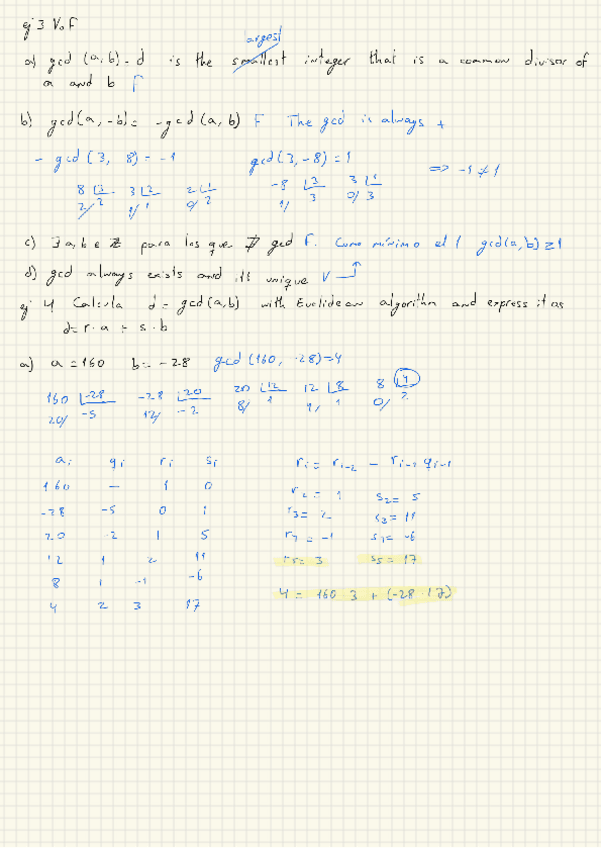 ej 3 V o F
argest
a) gcd (a,b) = d is the smallest integer that is a common divisor of
a and b F
b) gcd(a, -b) = -gcd(a,b) F The gcd is always +
- gcd (3, 8) = -1 gcd(3,-8) = 1 => -1 ≠ 1
8 |3 3 |2 2 |1 -8 |3 3 |1
2/ 2 1/ 1 0/ 2 1/ 3 0/ 3
c) ∃ a,b ∈ Z para los que ∄ gcd F. Como mínimo el 1 gcd(a,b) ≥ 1
d) gcd always exists and its unique V
ej 4 Calcula d = gcd(a,b) with Euclidean algorithm and express it as
d = r · a + s · b
a) a = 160 b = -28 gcd (160, -28) = 4
160 |-28 -28 |20 20 |12 12 |8 8 |4
20/ -5 12/ -2 8/ 1 4/ 1 0/ 2
ai qi ri si ri = ri-2 - ri-1 qi-1
160 - 1 0
-28 -5 0 1 r2 = 1 s2 = 5
20 -2 1 5 r3 = 2 s3 = 11
12 1 2 11 r4 = -1 s4 = -6
8 1 -1 -6 r5 = 3 s5 = 17
4 2 3 17 4 = 160 · 3 + (-28 · 17)